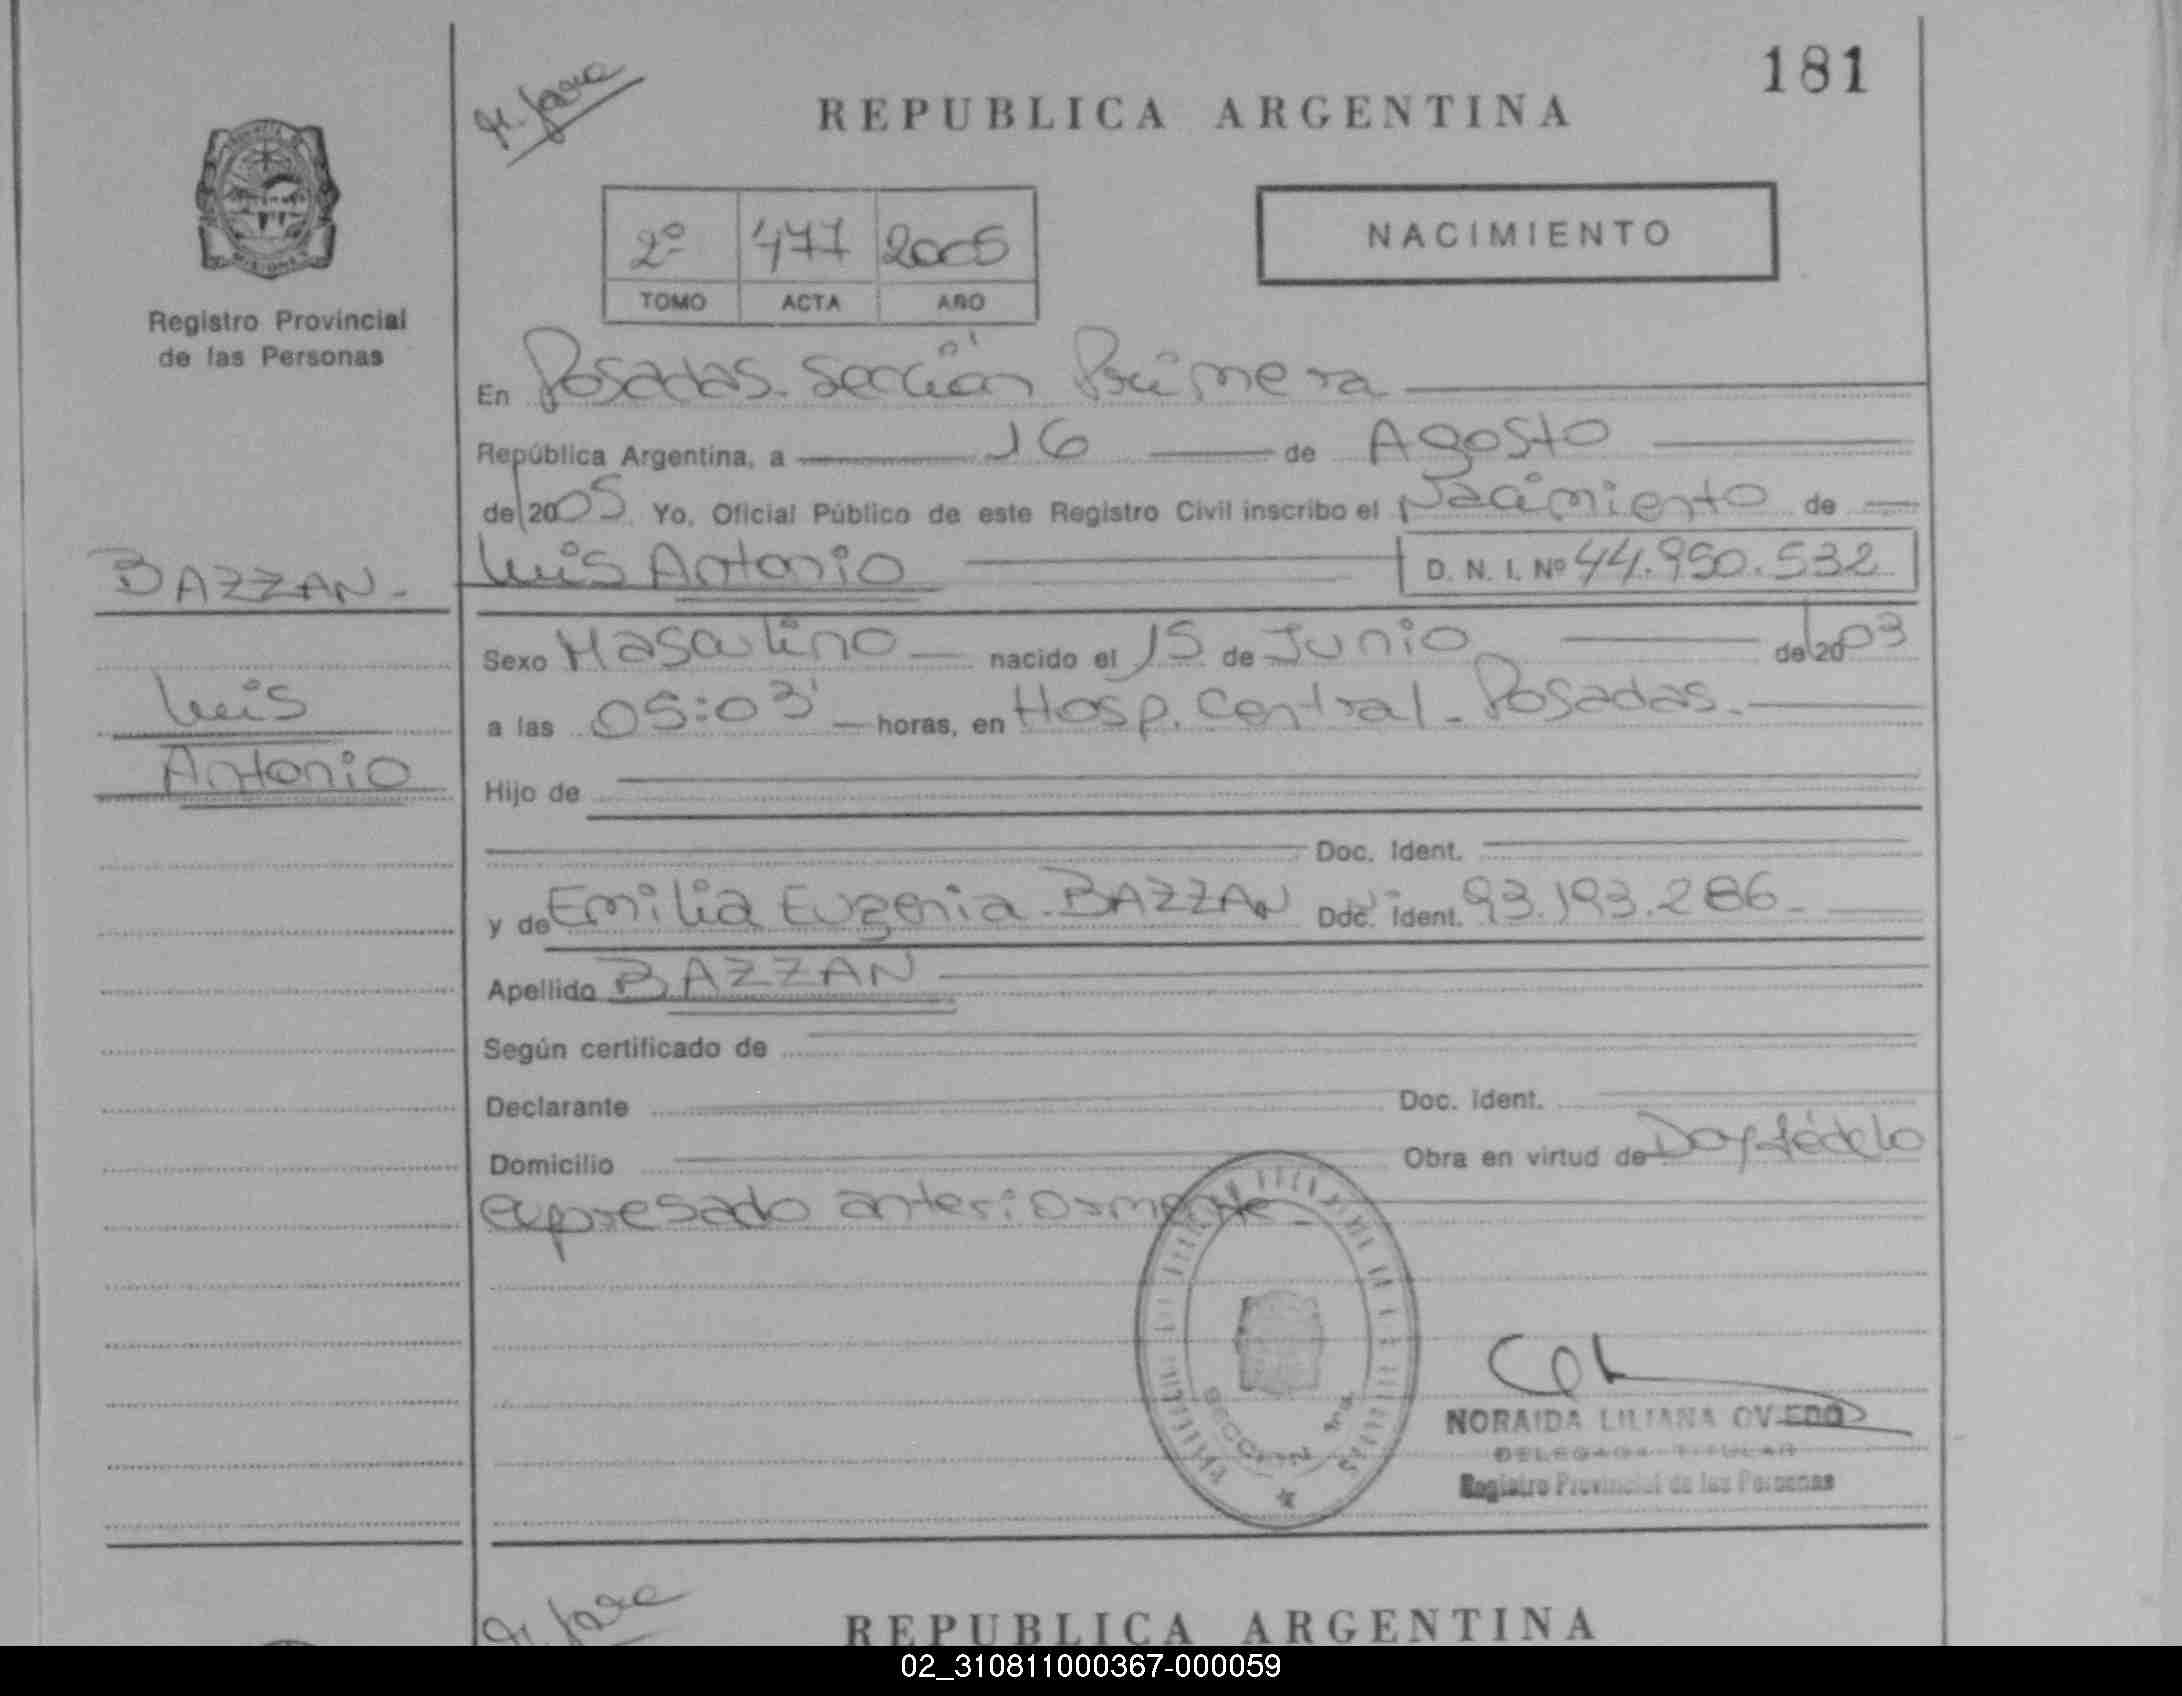 181
REPUBLICA ARGENTINA
NACIMIENTO
2º 477 2005
TOMO ACTA AÑO
Registro Provincial
de las Personas
En Posadas. Sección Primera
República Argentina, a 16 de Agosto
del 2005 Yo, Oficial Público de este Registro Civil inscribo el Nacimiento de
Luis Antonio D. N. I. Nº 44.950.532
BAZZAN.
Luis
Antonio
Sexo Masculino nacido el 15 de Junio del 2003
a las 05:03' horas, en Hosp. Central. Posadas.
Hijo de
Doc. Ident.
y de Emilia Eugenia BAZZAN Doc. Ident. 93.193.286
Apellido BAZZAN
Según certificado de
Declarante Doc. Ident.
Domicilio Obra en virtud de Doy fé de lo
expresado anteriormente
SECCION 1ra
NORAIDA LILIANA OVIEDO
DELEGADA TITULAR
Registro Provincial de las Personas
REPUBLICA ARGENTINA
02_310811000367-000059